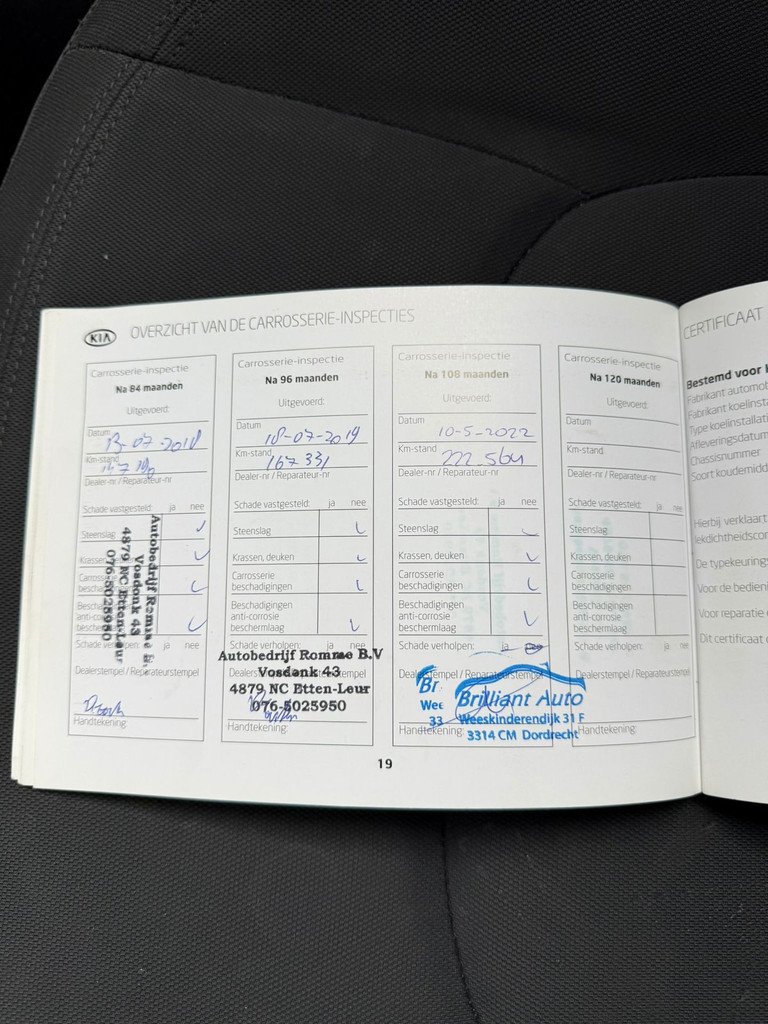 KIA OVERZICHT VAN DE CARROSSERIE-INSPECTIES
Carrosserie-inspectie
Na 84 maanden
Uitgevoerd:
Datum
13-07-2018
Km-stand
Dealer-nr / Reparateur-nr
Schade vastgesteld: ja nee
Steenslag
Krassen, deuken
Carrosserie
beschadigingen
anti-corrosie
beschermlaag
Schade verholpen:
Dealerstempel / Reparateurstempel
Handtekening:
Autobedrijf Rommae B.V
Vosdonk 43
4879 NC Etten-Leur
076-5025950
Carrosserie-inspectie
Na 96 maanden
Uitgevoerd:
Datum
18-07-2019
Km-stand
167 331
Dealer-nr / Reparateur-nr
Schade vastgesteld: ja nee
Steenslag
Krassen, deuken
Carrosserie
beschadigingen
Beschadigingen
anti-corrosie
beschermlaag
Autobedrijf Rommae B.V
Vosdonk 43
4879 NC Etten-Leur
076-5025950
Handtekening:
Carrosserie-inspectie
Na 108 maanden
Uitgevoerd:
Datum
10-5-2022
Km-stand
222.564
Dealer-nr / Reparateur-nr
Schade vastgesteld: ja nee
Steenslag
Krassen, deuken
Carrosserie
beschadigingen
Beschadigingen
anti-corrosie
beschermlaag
Schade verholpen: ja nee
Dealerstempel / Reparateurstempel
Br
Wee
33
Brilliant Auto
Weeskinderendijk 31 F
3314 CM Dordrecht
Handtekening:
Carrosserie-inspectie
Na 120 maanden
Uitgevoerd:
Datum
Km-stand
Dealer-nr / Reparateur-nr
Schade vastgesteld: ja nee
Steenslag
Krassen, deuken
Carrosserie
beschadigingen
Beschadigingen
anti-corrosie
beschermlaag
Schade verholpen: ja nee
Dealerstempel / Reparateurstempel
Handtekening:
19
CERTIFICAAT
Bestemd voor
Fabrikant automob
Fabrikant koelinsta
Type koelinstallati
Afleveringsdatum
Chassisnummer
Soort koudemidd
Hierbij verklaart
lekdichtheidscon
De typekeurings
Voor de bedieni
Voor reparatie
Dit certificaat